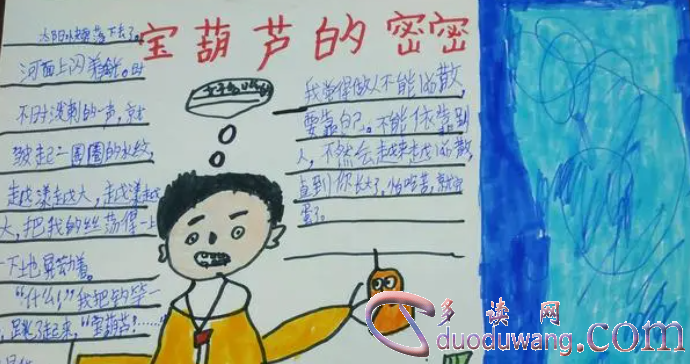 宝葫芦的密密
太阳快要落下去了。
河面上闪着金光。时
不时泼剌的一声,就
皱起一圈圈的水纹,
越漾越大,越漾越
大,把我的丝荡得一上
一下地晃动着。
“什么!”我把钓竿一
,跳了起来,“宝葫芦!……
我觉得做人不能懒散,
要靠自己。不能依靠别
人,不然会越来越懒散,
直到你长大了,怕吃苦,就完
蛋了。
多读网
duoduwang.com